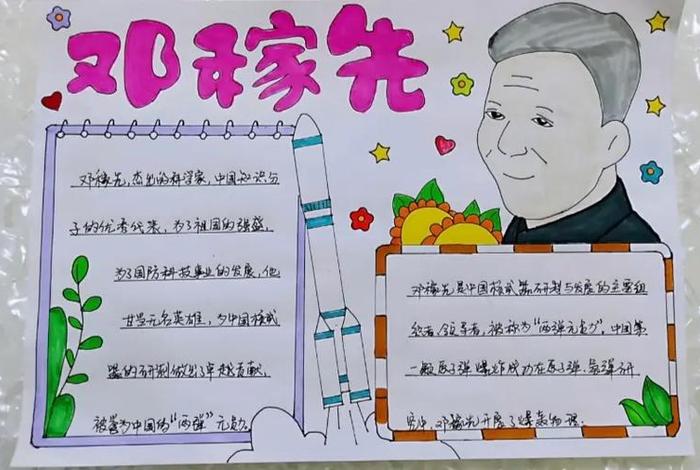 邓稼先
邓稼先，杰出的科学家，中国知识分
子的优秀代表，为了祖国的强盛，
为了国防科技事业的发展，他
甘当无名英雄，为中国核武
器的研制做出了卓越贡献，
被誉为中国的“两弹”元勋。
邓稼先是中国核武器研制与发展的主要组
织者、领导者，被称为“两弹元勋”。中国第
一颗原子弹爆炸成功在原子弹、氢弹研
究中，邓稼先开展了爆轰物理，